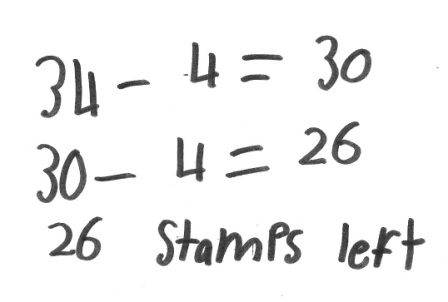 34 - 4 = 30
30 - 4 = 26
26 Stamps left